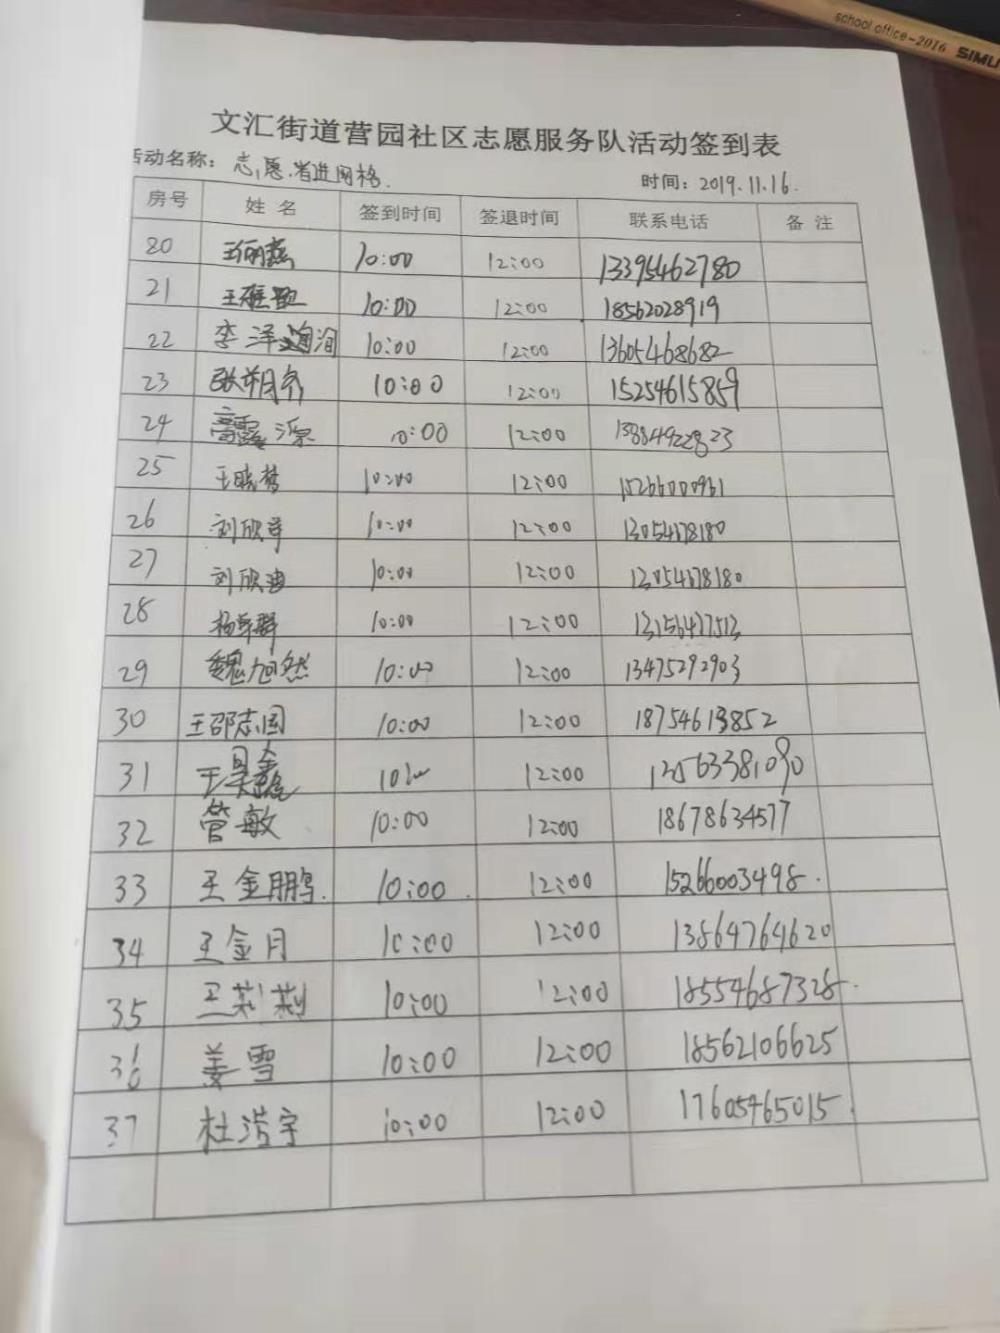 school office-2016 SIMLI
文汇街道营园社区志愿服务队活动签到表
活动名称：志愿者进网格. 时间：2019.11.16.
房号 姓名 签到时间 签退时间 联系电话 备注
20 10:00 12:00 13395462780
21 10:00 12:00 18562028919
22 李泽 10:00 12:00 13605468682
23 10:00 12:00 15254615859
24 高 10:00 12:00
25 王晓梦 10:00 12:00 15266000961
26 刘欣 10:00 12:00 13054678180
27 刘欣迪 10:00 12:00 13054678180
28 杨 10:00 12:00
29 魏旭然 10:00 12:00 13475292903
30 王邵志国 10:00 12:00 18754613852
31 王昊鑫 12:00
32 管敏 10:00 12:00 18678634577
33 王金鹏. 10:00 12:00 15266003498.
34 王金月 10:00 12:00 13864764620
35 王荆荆 10:00 12:00 18554687328.
36 姜雪 10:00 12:00 18562106625
37 杜浩宇 10:00 12:00 17605465015